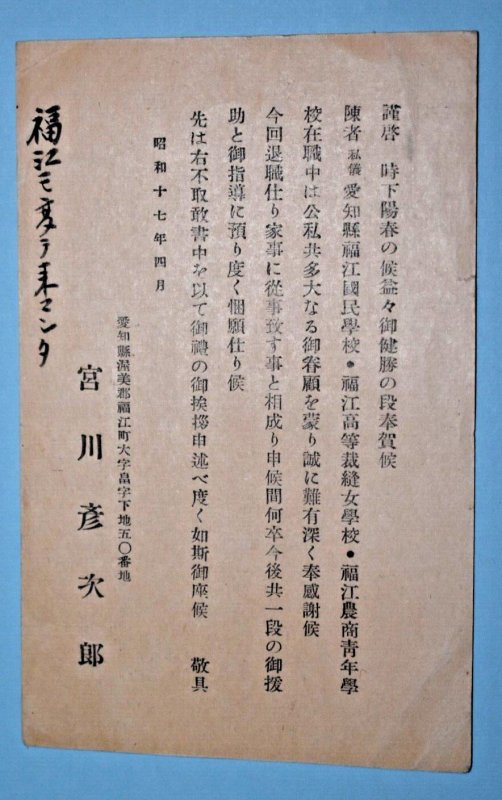 謹啓　時下陽春の候益々御健勝の段奉賀候
陳者私儀愛知縣福江國民學校・福江高等裁縫女學校・福江農商靑年學
校在職中は公私共多大なる御眷顧を蒙り誠に難有深く奉感謝候
今回退職仕り家事に從事致す事と相成り申候間何卒今後共一段の御援
助と御指導に預り度く悃願仕り候
先は右不取敢書中を以て御禮の御挨拶申述べ度く如斯御座候　敬具
昭和十七年四月
愛知縣渥美郡福江町大字畠字下地五〇番地
宮川彦次郎
福江モ